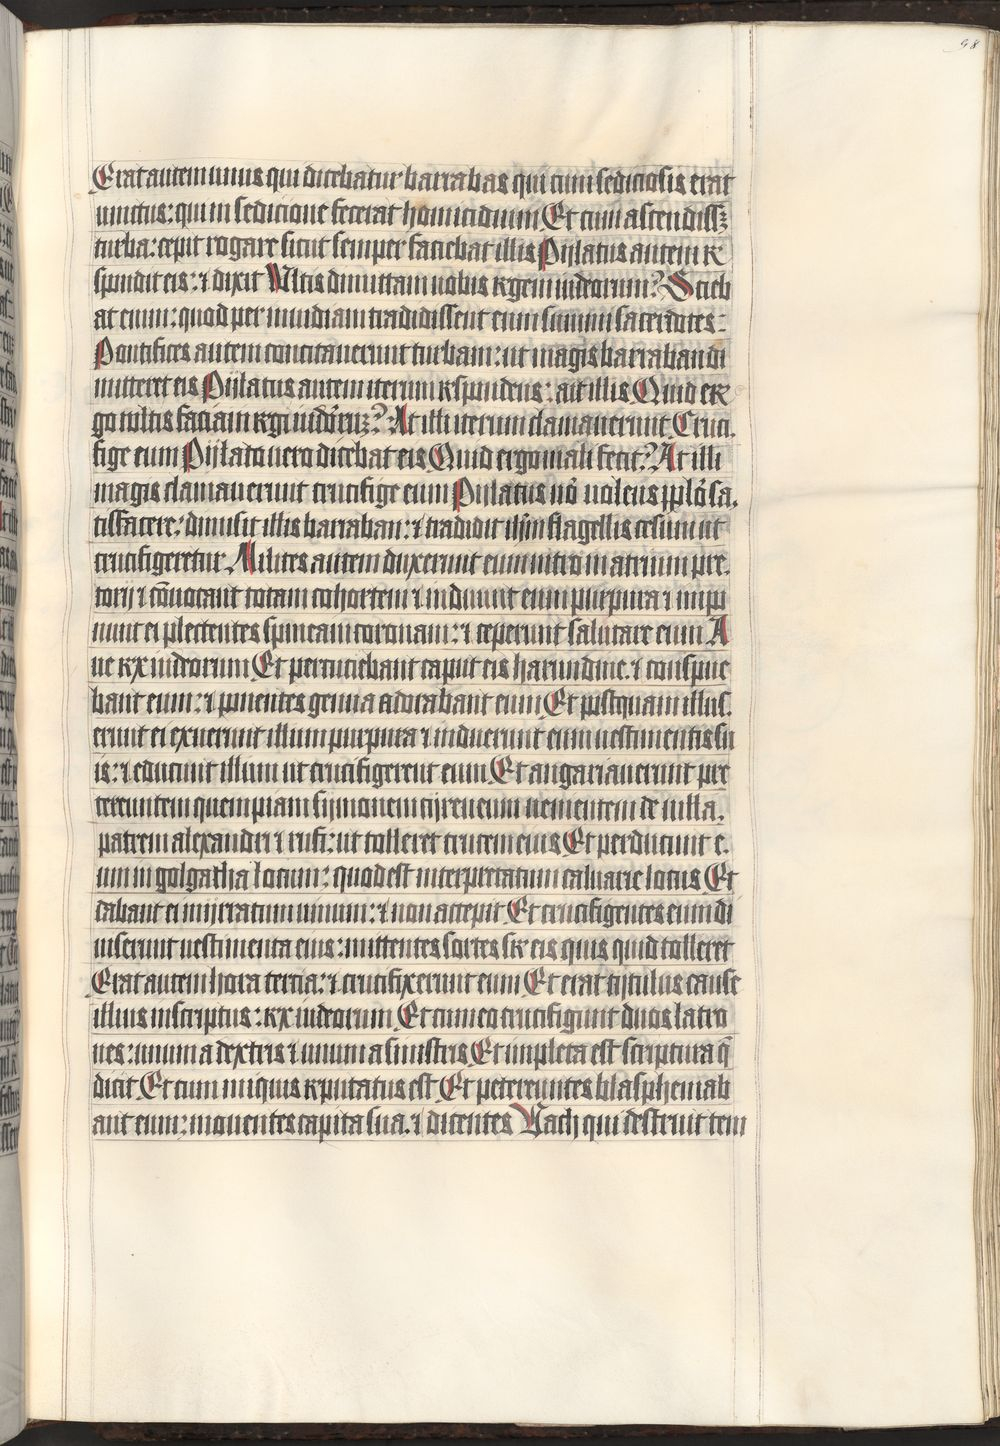 98
Erat autem unus qui dicebatur barrabas qui cum sediciosis erat
uinctus: qui in sedicione fecerat homicidium Et cum ascendissꝫ
turba: cepit rogare sicut semper faciebat illis Pijlatus autem re
spundit eis: ⁊ dixit Ultis dimittam uobis regem iudeorum? Scieb
at enim: quod per inuidiam tradidissent eum summi sacerdotes:
Pontifices autem concitauerunt turbam: ut magis barraban di
mitteret eis Pijlatus autem iterum respundens: ait illis Quid er
go uultis faciam regi iudeoruꝫ? At illi iterum clamauerunt Cruci.
fige eum Pijlato uero dicebat eis Quid ergo mali fecit? At illi
magis clamauerunt crucifige eum Pijlatus nō uolens pplō sa.
tisfacere: dimisit illis barraban: ⁊ tradidit ihm flagellis cesum ut
crucifigeretur Milites autem duxerunt eum intro in atrium pre.
torij ⁊ cōuocant totam cohortem ⁊ induunt eum purpura ⁊ inpo
nunt ei plectentes spineam coronam: ⁊ ceperunt salutare eum A
ue rex iudeorum Et percuciebant caput eis harundine. ⁊ conspue
bant eum: ⁊ ponentes genua adorabant eum Et postquam illus.
erunt ei exuerunt illum purpura ⁊ induerunt eum uestimentis su
is: ⁊ educunt illum ut crucifigerent eum Et angariauerunt pre
tereuntem quempiam sijmonem cijreneum uenientem de uilla.
patrem alexandri ⁊ rufi: ut tolleret crucem eius Et perducunt e.
um in golgatha locum: quod est interpretatum caluarie locus Et
dabant ei mijrratum uinum: ⁊ non accepit Et crucifigentes eum di
uiserunt uestimenta eius: mittentes sortes sr eis quis quid tolleret
Erat autem hora tercia: ⁊ crucifixerunt eum Et erat tijtulus cause
illius inscriptus: rex iudeorum Et cum eo crucifigunt duos latro
nes: unum a dextris ⁊ unum a sinistris Et inpleta est scriptura q̄
dicit Et cum iniquis reputatus est Et petereuntes blasphemab
ant eum: mouentes capita sua. ⁊ dicentes Uach qui destruit tem